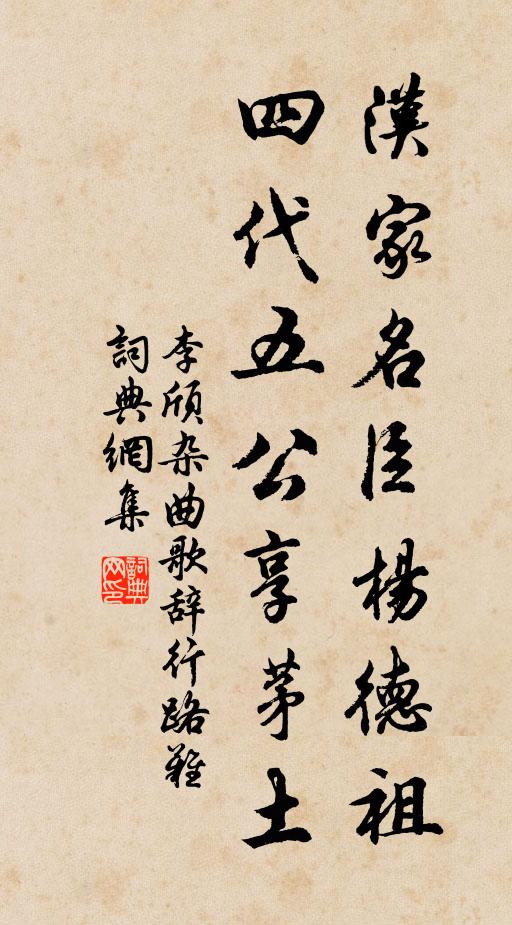 漢家名臣楊德祖
四代五公享茅土
李頎杂曲歌辞行路難
詞典網集
詞典
网印